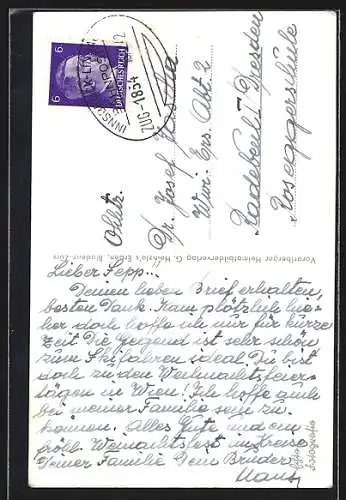 6 6
DEUTSCHES REICH
INNSBRUCK-LINDAU
BAHNPOST
ZUG 1854
Obltz.
Dr. Josef
Wir. Ers. Abt. 2
Radebeul - Dresden
Roseggerstraße
Vorarlberger Heimatbilderverlag G. Heinzle's Erben, Bludenz-Zürs
Lieber Sepp!..
Deinen lieben Brief erhalten,
besten Dank. Kam plötzlich hie-
her doch hoffe ich nur für kurze
Zeit Die Gegend ist sehr schön
zum Skifahren ideal Du bist
doch zu den Weihnachtsfeier-
tagen in Wien! Ich hoffe auch
bei meiner Familie sein zu
können. Alles Gute und ein
fröhl. Weinachtsfest im Kreise
Deiner Familie Dein Bruder
Hans
Echte
Fotografie